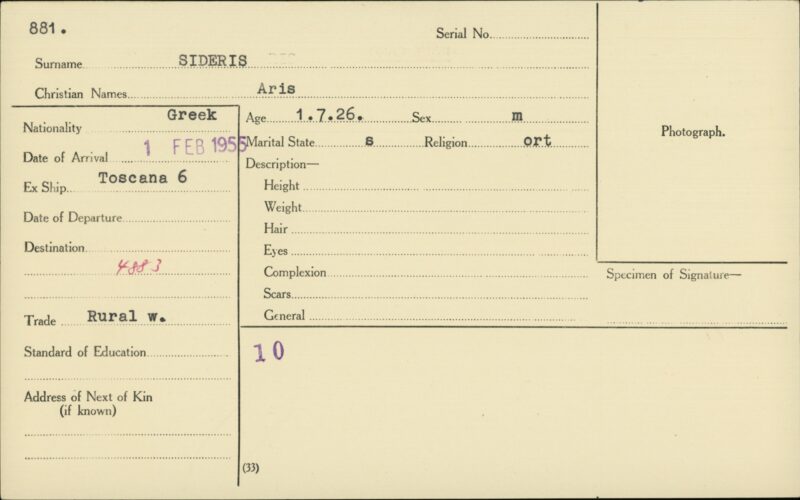 881.
Serial No.
Surname SIDERIS
Christian Names Aris
Nationality Greek
Date of Arrival 1 FEB 1955
Ex Ship Toscana 6
Date of Departure
Destination
4883
Trade Rural w.
Standard of Education
Address of Next of Kin
(if known)
Age 1.7.26. Sex m
Marital State s Religion ort
Description—
Height
Weight
Hair
Eyes
Complexion
Scars
General
10
(33)
Photograph.
Specimen of Signature—